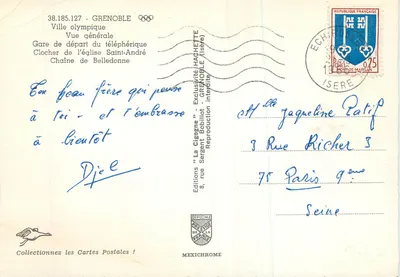 38.185.127 - GRENOBLE
Ville olympique
Vue générale
Gare de départ du téléphérique
Clocher de l'église Saint-André
Chaîne de Belledonne
Ton beau frère qui pense
à toi - et t'embrasse
à bientôt
Djel
Collectionnez les Cartes Postales !
Editions "La Cigogne" - Exclusivité HACHETTE
5, rue Sergent Bobillot - GRENOBLE (Isère)
Reproduction interdite
MEXICHROME
REPUBLIQUE FRANÇAISE
0,25
ISERE
Mlle Jacqueline Patif
3 Rue Richer 3
75 Paris 9eme
Seine